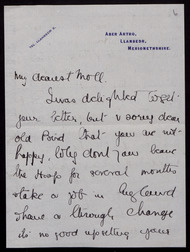 TEL. LLANBEDR 5.
ABER ARTRO,
LLANBEDR,
MERIONETHSHIRE.
My dearest Moll.
I was delighted to get
your letter, but v sorry dear
old Bird that you are not
happy. Why dont you leave
the Hosp for several months
& take a job in England
& have a thorough change
its no good upsetting your